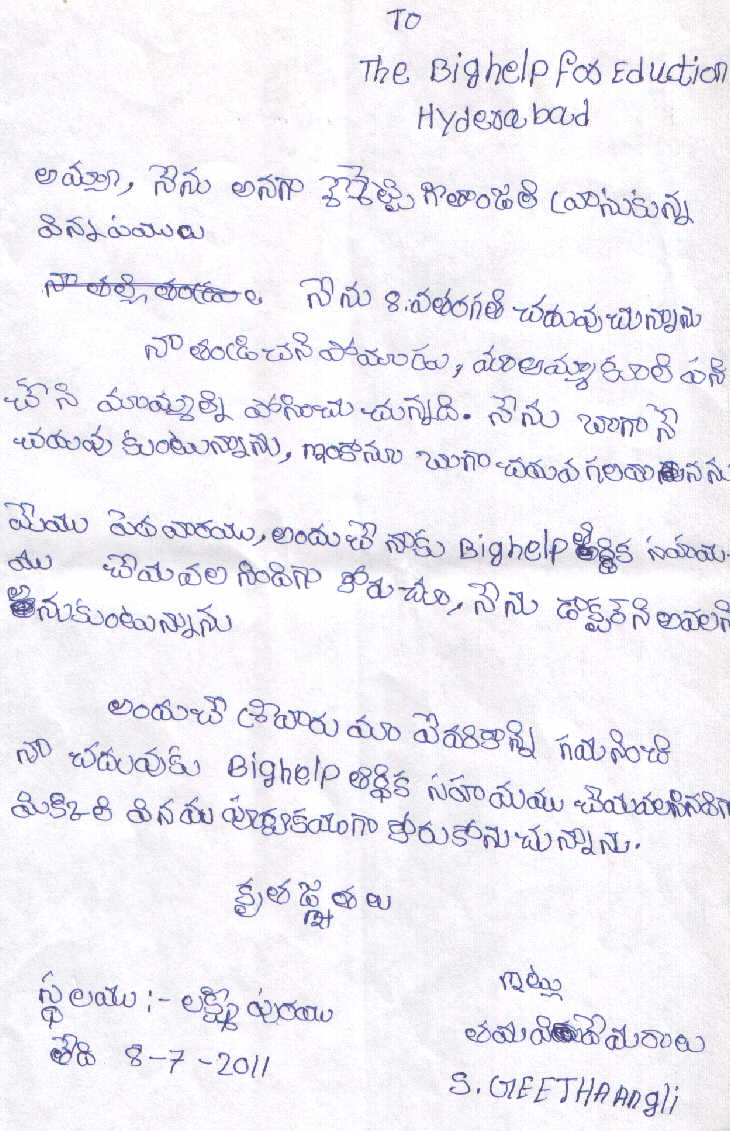 TO
The Bighelp for Eduction
Hyderabad
అమ్మా, నేను అనగా గీతాంజలి వ్రాసుకున్న
విన్నపములు
నేను 8.వతరగతి చదువుచున్నాను
నా తండ్రి చనిపోయాడు, మాఅమ్మ కూలి పని
చేసి మమ్మల్ని పోషించు చున్నది. నేను బాగానే
చదువు కుంటున్నాను, ఇంకానూ బాగా చదువ గలను
మేము పేద వారము, అందుచే నాకు Bighelp ఆర్థిక సహయ
ము చేయవల సిందిగా కోరుచూ, నేను డాక్టర్ని అవలని
అనుకుంటున్నాను
అందుచే శ్రీవారు మా పేదరికాన్ని గమనించి
నా చదువుకు Bighelp ఆర్థిక సహయము చేయవలసినదిగా
మిక్కిలి వినయ పూర్వకముగా కోరుకొనుచున్నాను.
కృతజ్ఞతలు
ఇట్లు
స్థలము :- లక్ష్మీపురము
తమ విదేయురాలు
తేది 8-7-2011
S. GEETHAANgli